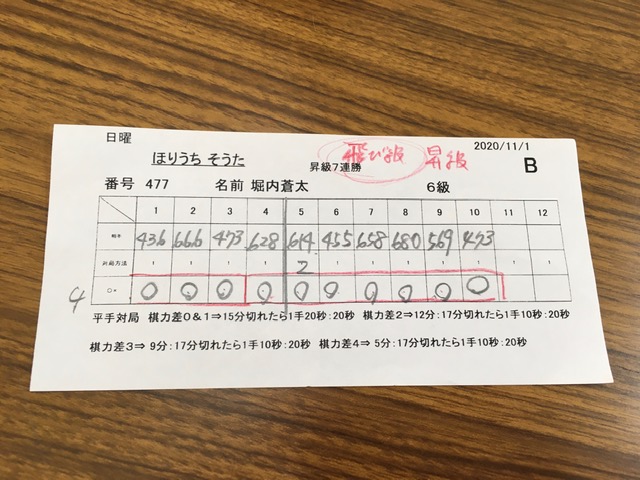 日曜
2020/11/1
ほりうち そうた
昇級7連勝
飛び級 昇級
B
番号 477 名前 堀内蒼太 6級
1 2 3 4 5 6 7 8 9 10 11 12
436 666 473 628 614 455 658 680 569 473
対局方法 1 1 1 1 1 1 1 1 1 1 1 1
2
4 ○ ○ ○ ○ ○ ○ ○ ○ ○ ○
平手対局 棋力差0&1⇒15分切れたら1手20秒:20秒 棋力差2⇒12分:17分切れたら1手10秒:20秒
棋力差3⇒ 9分:17分切れたら1手10秒:20秒 棋力差4⇒ 5分:17分切れたら1手10秒:20秒